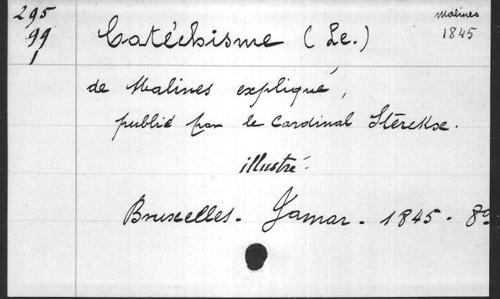 295
99
1
Malines
1845
Catéchisme (Le.)
de Malines expliqué,
publié par le Cardinal Sterckx.
illustré.
Bruxelles. Jamar. 1845. 8º